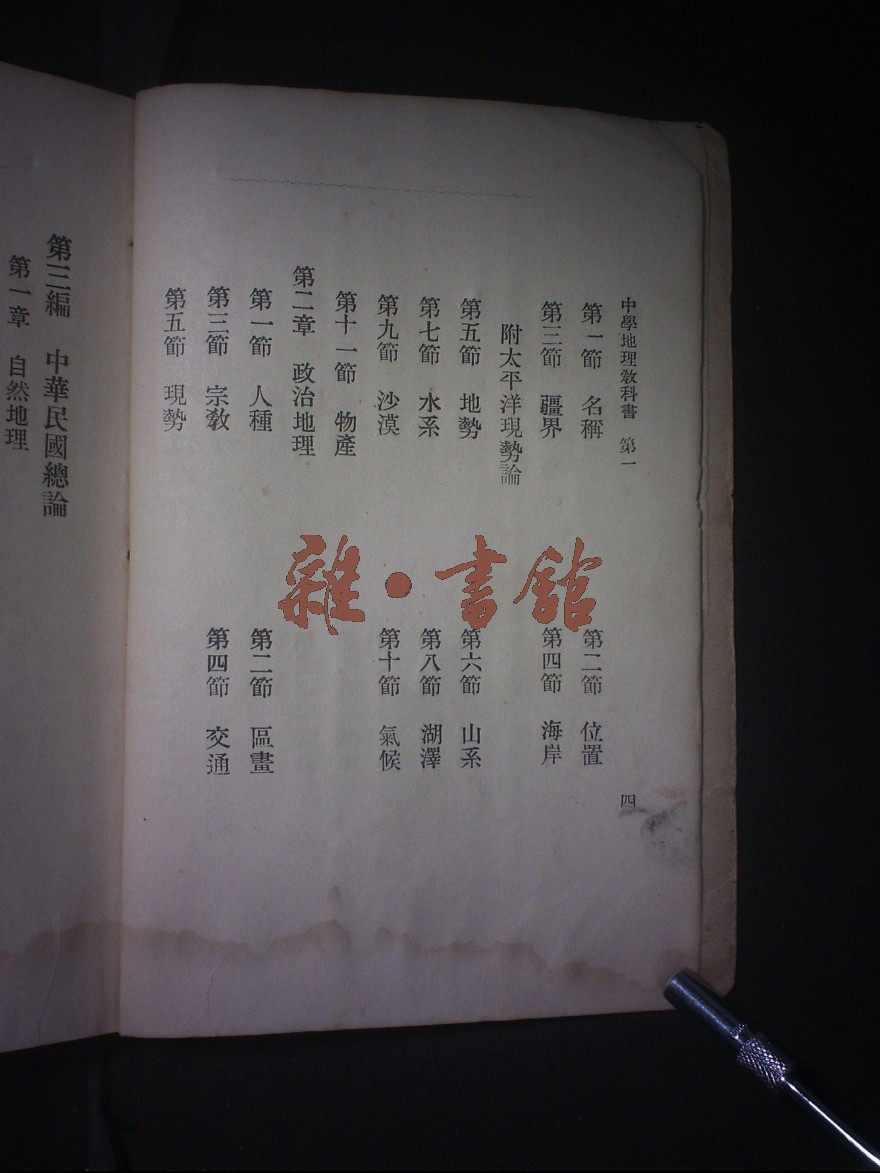 中學地理教科書 第一 四
第一節 名稱 第二節 位置
第三節 疆界 第四節 海岸
附太平洋現勢論
第五節 地勢 第六節 山系
第七節 水系 第八節 湖澤
第九節 沙漠 第十節 氣候
第十一節 物產
第二章 政治地理
第一節 人種 第二節 區畫
第三節 宗教 第四節 交通
第五節 現勢
第三編 中華民國總論
第一章 自然地理
雜·書館